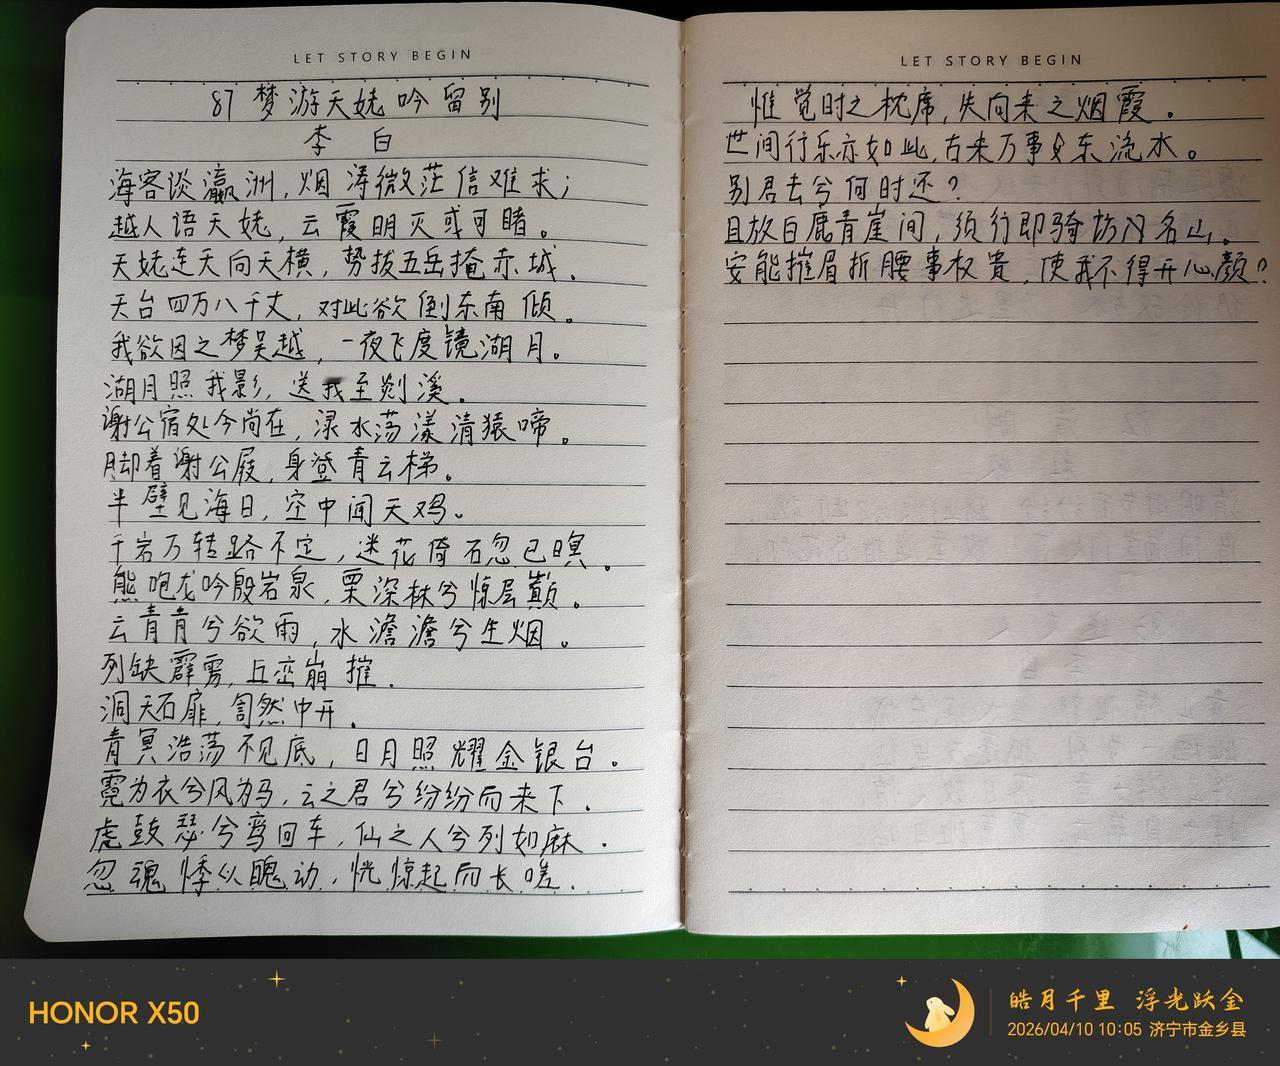 LET STORY BEGIN
87 梦游天姥吟留别
李 白
海客谈瀛洲,烟涛微茫信难求;
越人语天姥,云霞明灭或可睹。
天姥连天向天横,势拔五岳掩赤城.
天台四万八千丈,对此欲倒东南倾。
我欲因之梦吴越,一夜飞度镜湖月。
湖月照我影,送我至剡溪。
谢公宿处今尚在,渌水荡漾清猿啼。
脚着谢公屐,身登青云梯。
半壁见海日,空中闻天鸡。
千岩万转路不定,迷花倚石忽已暝。
熊咆龙吟殷岩泉,栗深林兮惊层巅。
云青青兮欲雨,水澹澹兮生烟。
列缺霹雳,丘峦崩摧.
洞天石扉,訇然中开.
青冥浩荡不见底,日月照耀金银台.
霓为衣兮风为马,云之君兮纷纷而来下.
虎鼓瑟兮鸾回车,仙之人兮列如麻.
忽魂悸以魄动,恍惊起而长嗟.
LET STORY BEGIN
惟觉时之枕席,失向来之烟霞.
世间行乐亦如此,古来万事东流水。
别君去兮何时还?
且放白鹿青崖间,须行即骑访名山.
安能摧眉折腰事权贵,使我不得开心颜?
HONOR X50
皓月千里 浮光跃金
2026/04/10 10:05 济宁市金乡县